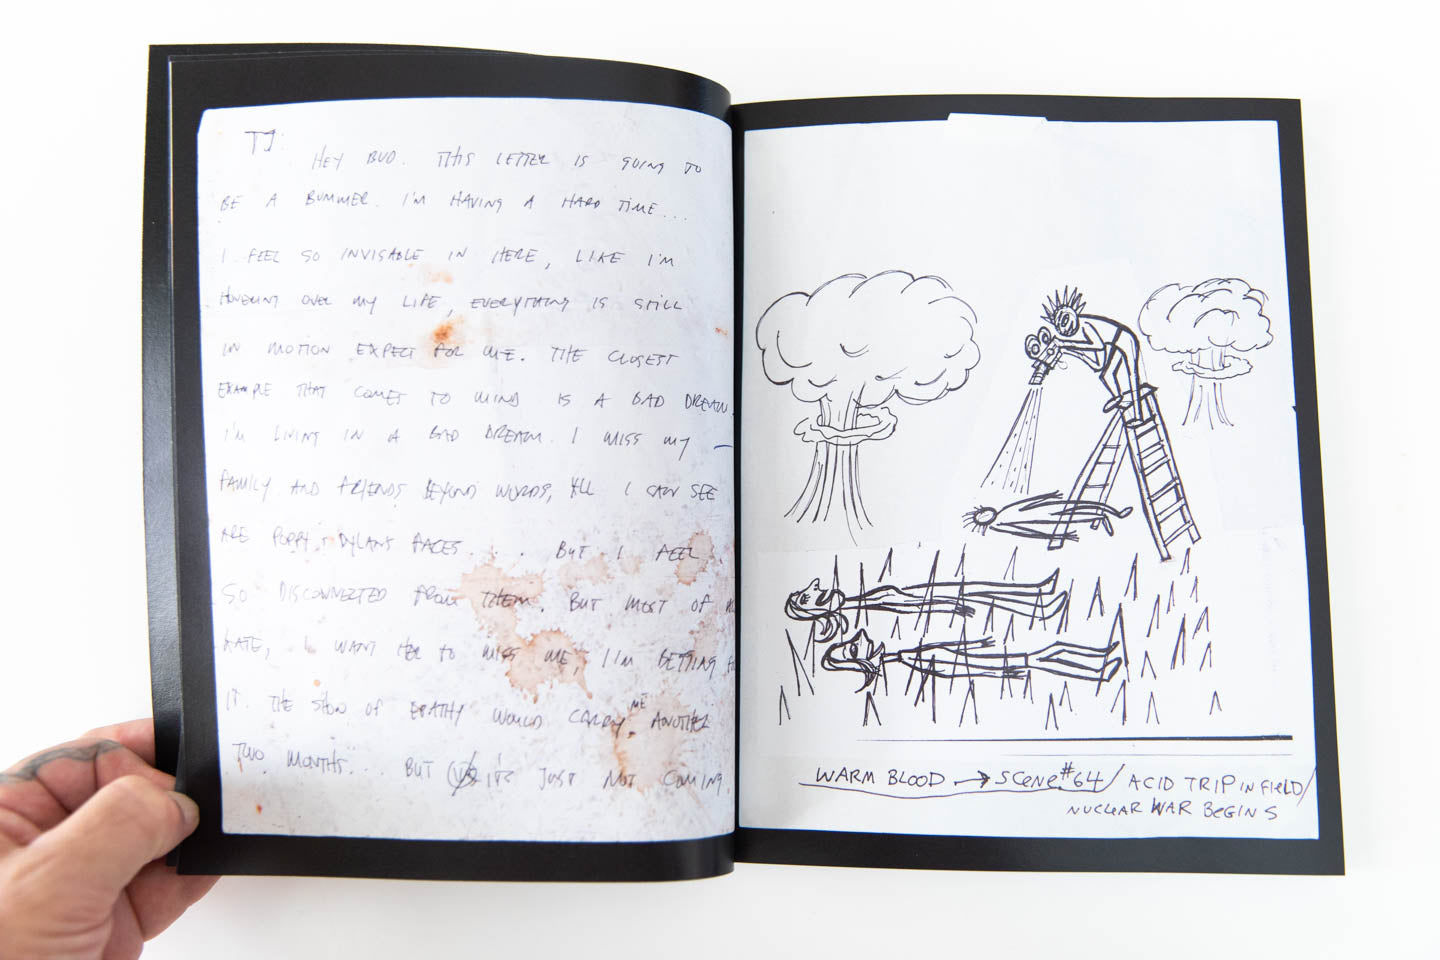 TJ.
HEY BUD. THIS LETTER IS GOING TO
BE A BUMMER. I'M HAVING A HARD TIME...
I FEEL SO INVISABLE IN HERE, LIKE I'M
OVER MY LIFE, EVERYTHING IS STILL
IN MOTION EXPECT FOR ME. THE CLOSEST
EXAMPLE THAT COMES TO MIND IS A BAD DREAM.
I'M LIVING IN A BAD DREAM. I MISS MY
FAMILY AND FRIENDS BEYOND WORDS, ALL I CAN SEE
ARE POPPY + DYLANS FACES... BUT I FEEL
SO DISCONNECTED FROM THEM. BUT MOST OF
KATE, I WANT HER TO MISS ME I'M BETTING
IT. THE SHOW OF EPATHY WOULD CARRY ME ANOTHER
TWO MONTHS... BUT IT'S JUST NOT COMING.
WARM BLOOD → SCENE #64/ ACID TRIP IN FIELD/
NUCLEAR WAR BEGINS